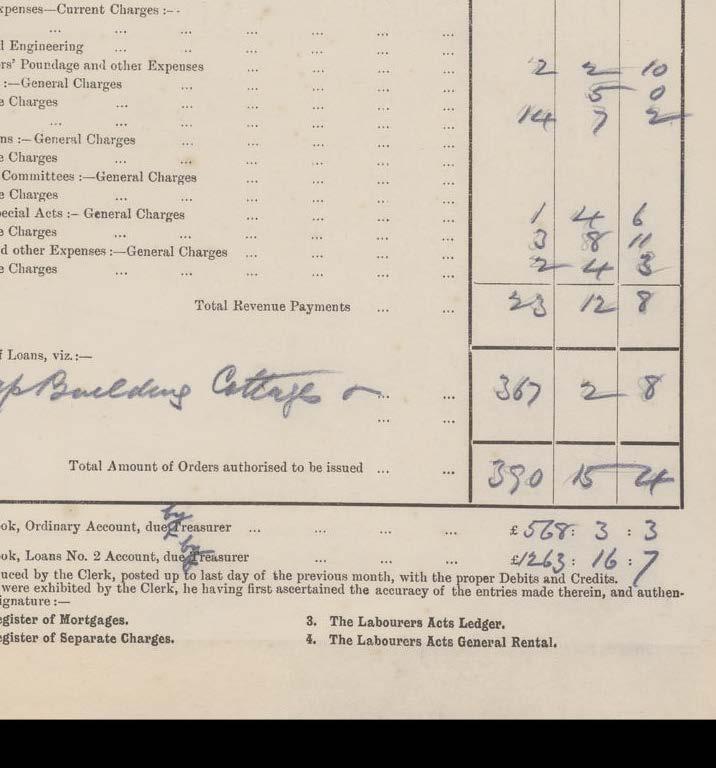 xpenses—Current Charges :—
... ... ... ... ... ... ...
l Engineering ... ... ... ... ... ...
rs' Poundage and other Expenses ... ... ... ... 2 2 10
:—General Charges ... ... ... ... ... 5 0
e Charges ... ... ... ... ... ... 14 7 2
... ... ... ... ... ... ...
ns :—General Charges ... ... ... ... ...
e Charges ... ... ... ... ... ...
Committees :—General Charges ... ... ... ...
e Charges ... ... ... ... ... ...
ecial Acts :— General Charges ... ... ... ... 1 4 6
e Charges ... ... ... ... ... ... 3 8 11
d other Expenses :—General Charges ... ... ... ... 2 4 3
e Charges ... ... ... ... ... ...
Total Revenue Payments ... ... 23 12 8
f Loans, viz.:—
Building Cottages ... ... 367 2 8
... ...
Total Amount of Orders authorised to be issued ... ... 390 15 4
by
ok, Ordinary Account, due Treasurer ... ... ... ... £568 : 3 : 3
by
ok, Loans No. 2 Account, due Treasurer ... ... ... £1263 : 16 : 7
uced by the Clerk, posted up to last day of the previous month, with the proper Debits and Credits.
were exhibited by the Clerk, he having first ascertained the accuracy of the entries made therein, and authen-
ignature :—
egister of Mortgages. 3. The Labourers Acts Ledger.
egister of Separate Charges. 4. The Labourers Acts General Rental.